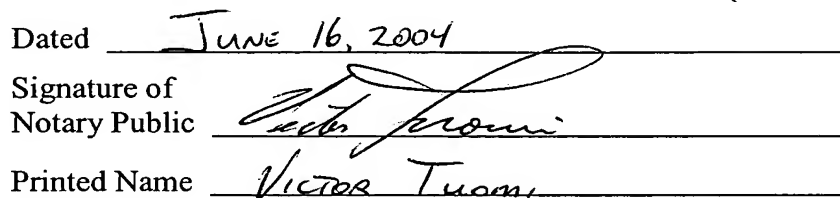 Dated JUNE 16, 2004
Signature of
Notary Public Victor Tuomi
Printed Name VICTOR TUOMI